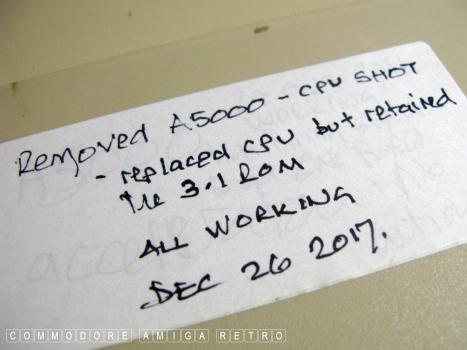 Removed A5000 - CPU SHOT
- replaced cpu but retained
the 3.1 ROM
ALL WORKING
DEC 26 2017.
COMMODORE AMIGA RETRO